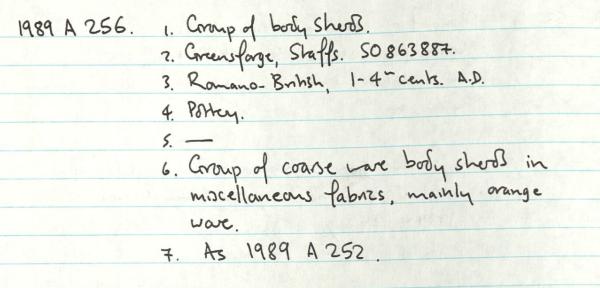 1989 A 256. 1. Group of body sherds.
2. Greensforge, Staffs. SO 863887.
3. Romano-British, 1-4th cents. A.D.
4. Pottery.
5. —
6. Group of coarse ware body sherds in
miscellaneous fabrics, mainly orange
ware.
7. As 1989 A 252.